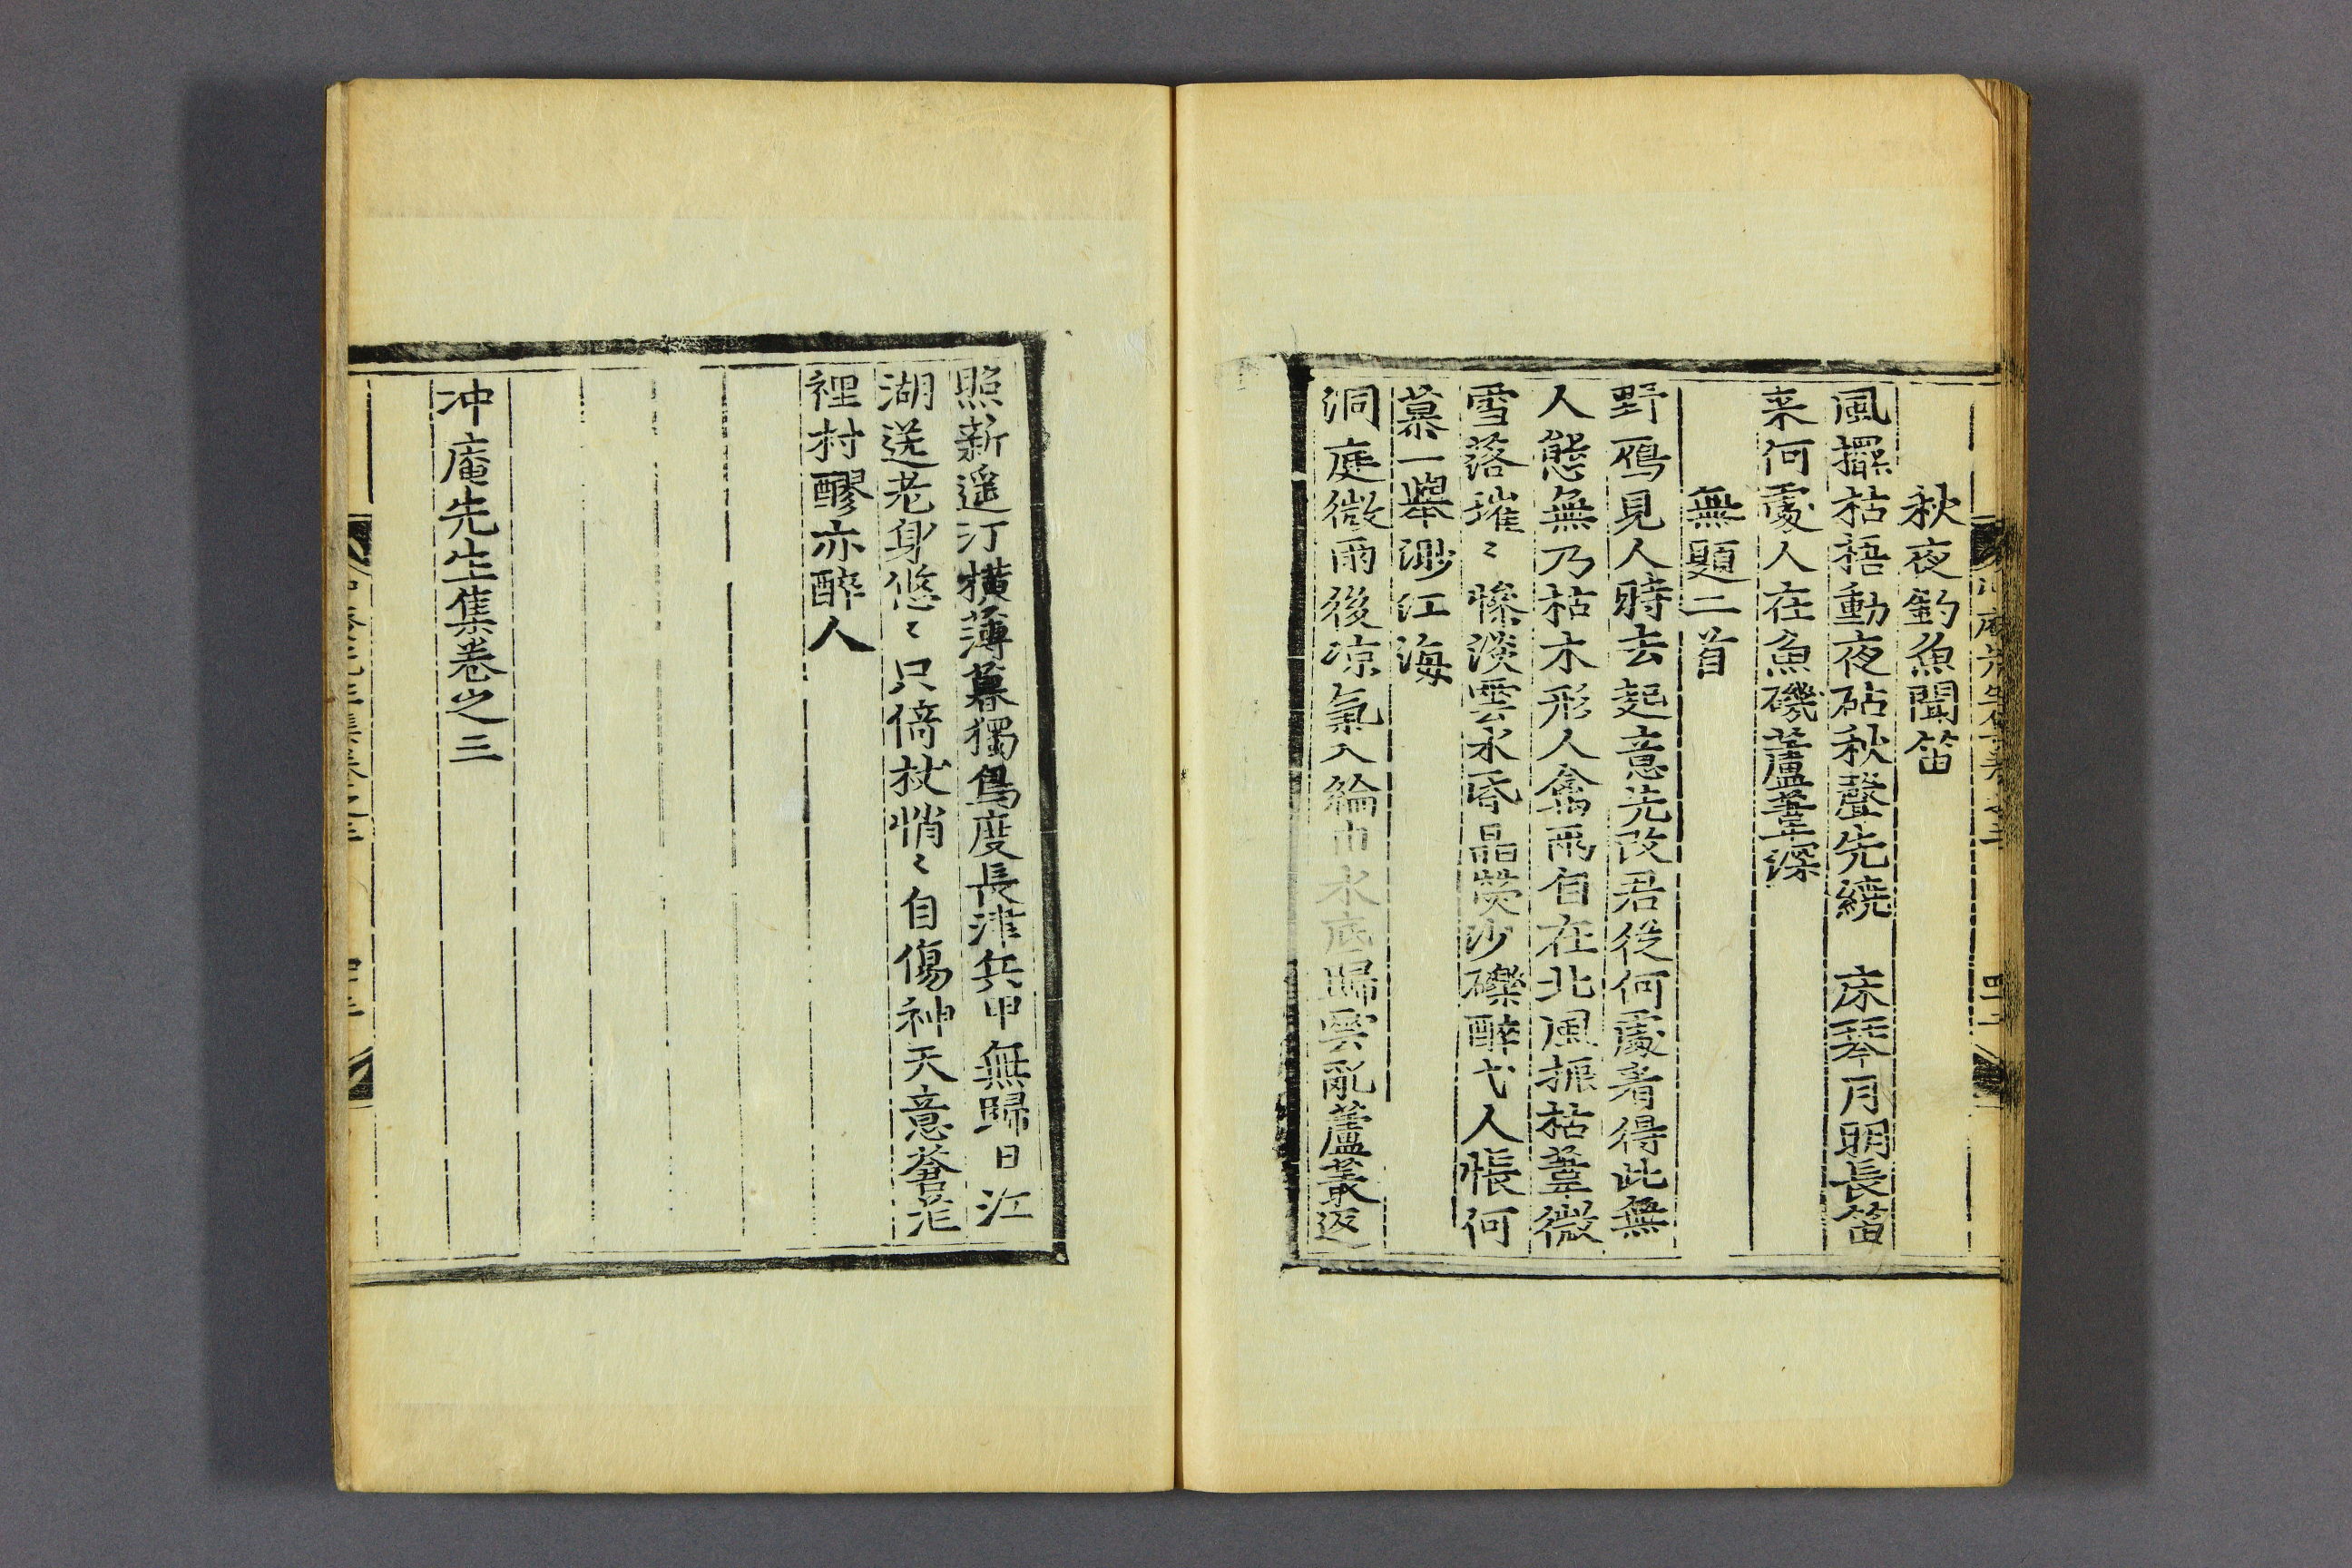 秋夜釣魚聞笛
風擺枯梧動夜砧秋聲先繞　床琴月明長笛
来何處人在魚磯蘆葦深
無題二首
野鴈見人時去起意先改君從何處看得此無
人態無乃枯木形人禽兩自在北風振枯葦微
雪落璀〻慘淡雲水昏晶熒沙礫醉弋人悵何
慕一擧渺江海
洞庭微雨後凉氣入綸巾水底歸雲亂蘆叢返
照新遥汀橫薄暮獨鳥度長津兵甲無歸日江
湖送老身悠〻只倚杖悄〻自傷神天意蒼茫
裡村醪亦醉人
冲庵先生集卷之三